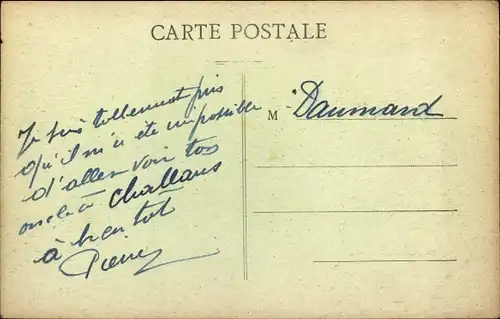 CARTE POSTALE
Je suis tellement pris
qu'il m'a été impossible
d'aller voir ton
oncle à Challans
à bientot
Pierre
M Daumard